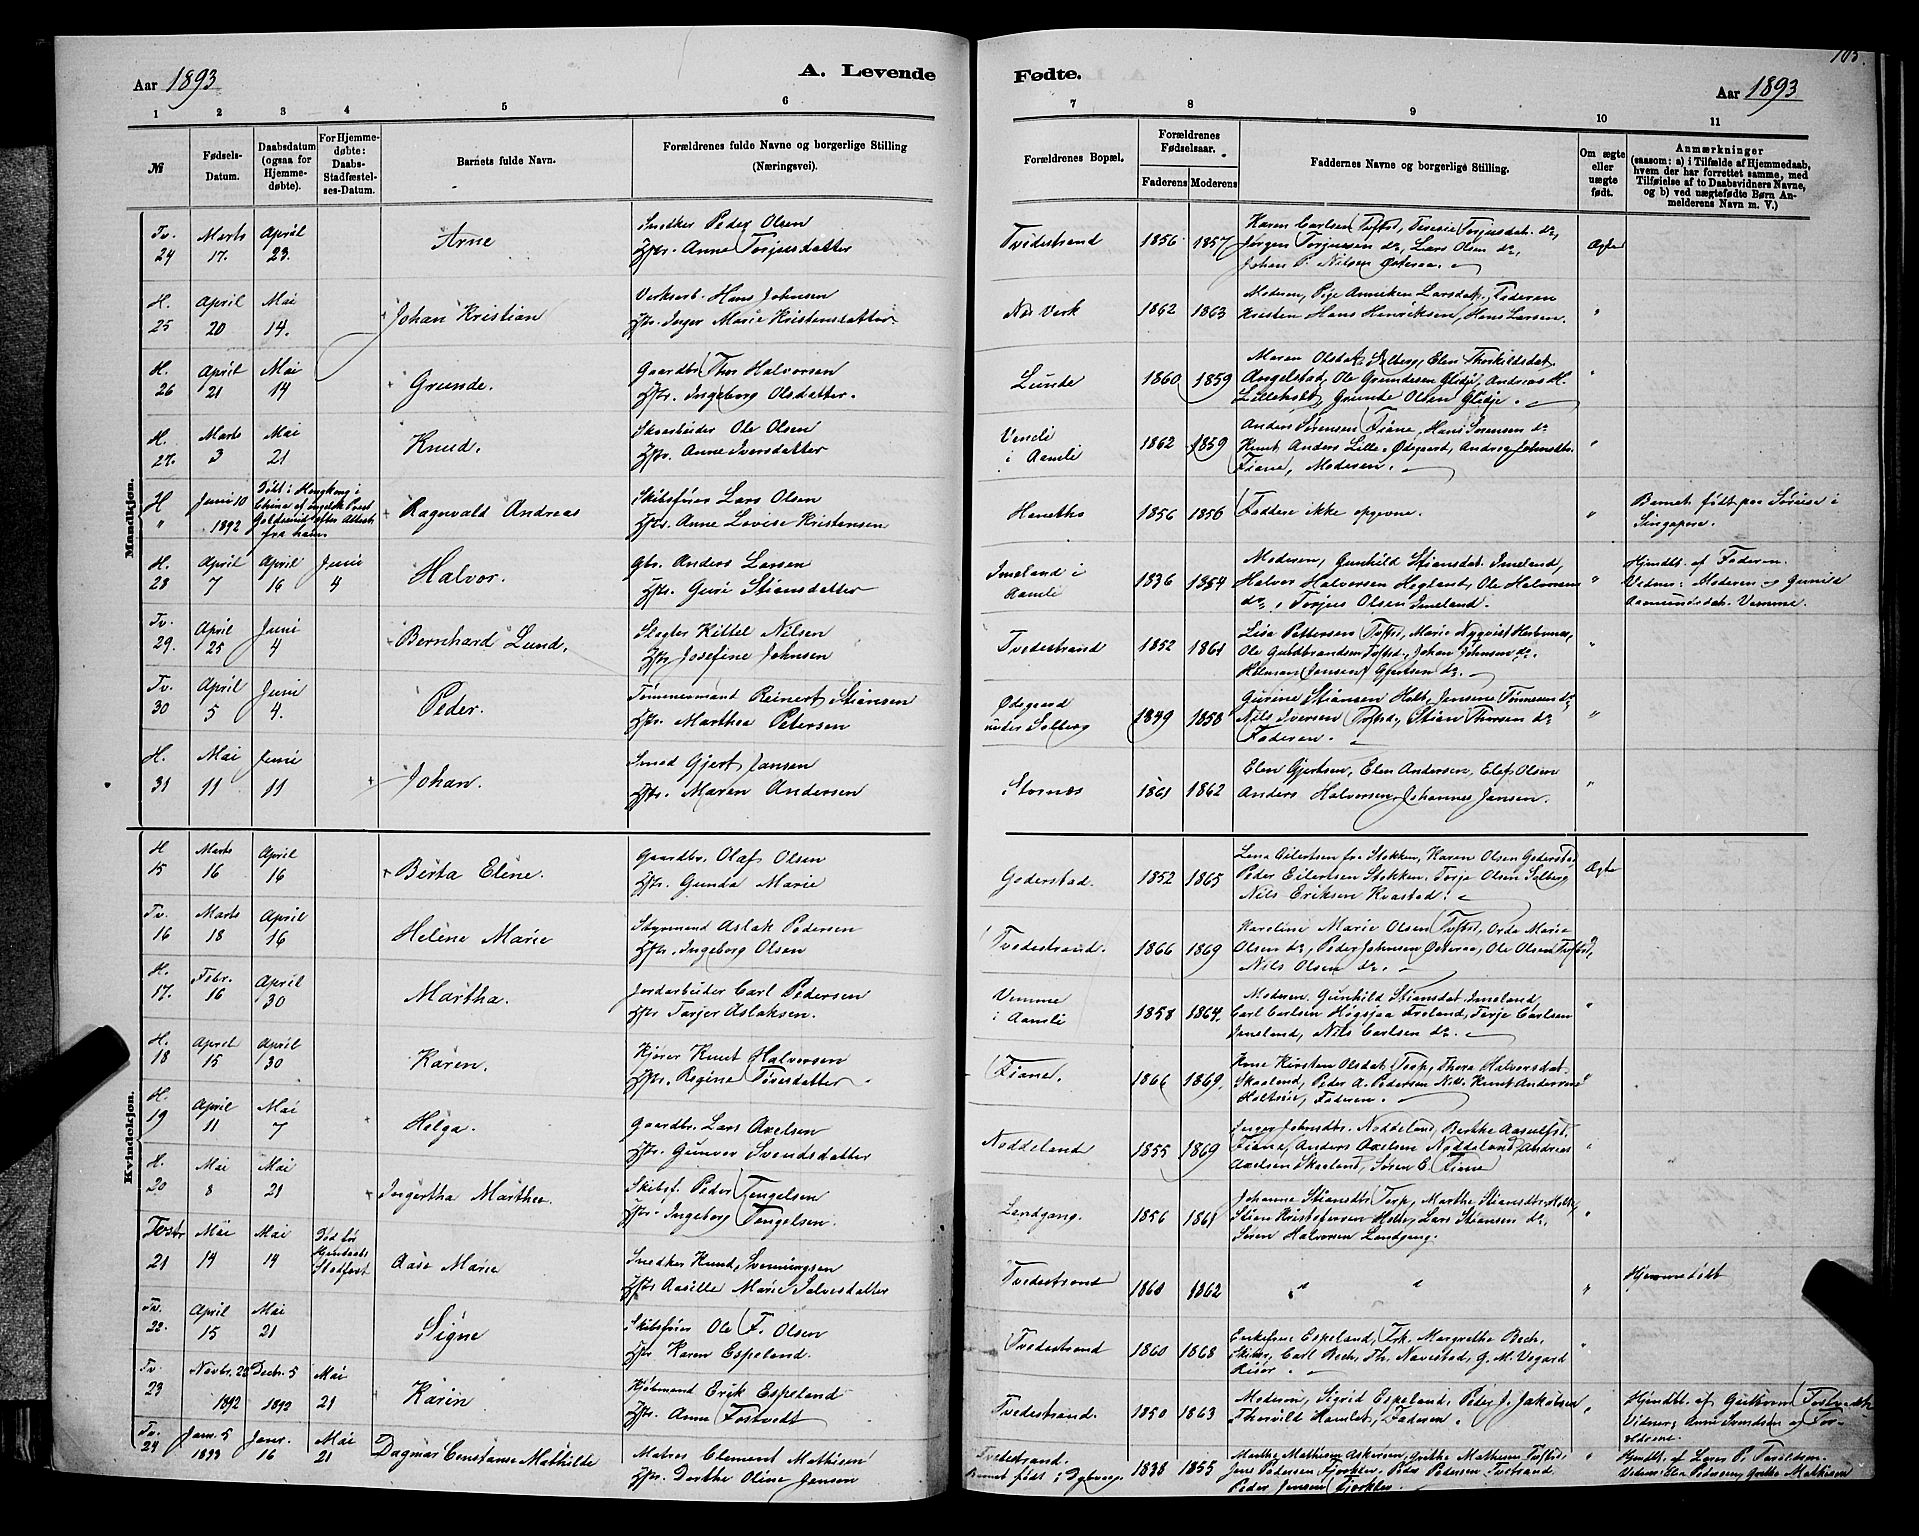 105.
Aar 1893
A. Levende
Fødte.
Aar 1893
1 2 3 4 5 6 7 8 9 10 11
№
Fødsels-Datum.
Daabsdatum (ogsaa for Hjemmedøbte).
For Hjemmedøbte: Daabs-Stadfæstelses-Datum.
Barnets fulde Navn.
Forældrenes fulde Navne og borgerlige Stilling (Næringsvei).
Forældrenes Bopæl.
Forældrenes Fødselsaar.
Faderens Moderens
Faddernes Navne og borgerlige Stilling.
Om ægte eller uægte født.
Anmærkninger (saasom: a) i Tilfælde af Hjemmedaab, hvem der har forrettet samme, med Tilføielse af to Daabsvidners Navne, og b) ved uægtefødte Børn Anmelderens Navn m. V.)
Mandkjøn.
Tv. 24 Marts 17. April 23. Arne
Snedker Peder Olsen
Hstr. Anne Torjusdatter
Tvedestrand 1856 1857
Karen Carlsen Tofsd, Teresie Torjusdat. do,
Jørgen Torjussen do, Lars Olsen do,
Johan P. Nilsen Østeraa.
Ægte
H. 25 April 20 Mai 14. Johan Kristian
Verksarb. Hans Johnsen
Hstr. Inger Marie Kristensdatter
Næs Verk 1862 1863
Moderen, Pige Anniken Larsdat., Faderen
Kristen Hans Henriksen, Hans Larsen.
"
H. 26 April 21 Mai 14 Grunde.
Gaardbr. Thor Halvorsen
Hstr. Ingeborg Olsdatter.
Lunde 1860 1859
Maren Olsdat. Solberg, Elen Thorkildsdat.
Angelstad, Ole Grundesen Glidje, Andreas H.
Lilleholt, Grunde Olsen Glidje.
"
H. 27. Marts 3 Mai 21 Knud.
Skoarbeider Ole Olsen
Hstr. Anne Iversdatter
Vendli i Aamli 1862 1859
Anders Sørensen Fiane, Hans Sørensen do
Knut Anders Lille Ødegaard, Andrea Johnsdtr.
Fiane, Moderen.
"
H " Juni 10 1892
Døbt i Hongkong i
China af engelsk Prest
Goldsmid efter Attest
fra ham.
Ragnvald Andreas
Skibsfører Lars Olsen
Hstr. Anne Lovise Kristensen
Hanetho 1856 1856
Faddere ikke opgevne.
"
Barnet født paa Søreise i
Singapore.
H. 28 April 7 April 16 Juni 4 Halvor.
Gbr. Anders Larsen
Hstr. Guri Stiansdatter
Ineland i Aamli 1836 1854
Moderen, Gunhild Stiansdat. Ineland,
Halvor Halvorsen Hegland, Ole Halvorsen
do, Torjus Olsen Ineland.
"
Hjmdbt. af Faderen.
Vidner: Moderen og Gunild
Aamundsdat. Vemme.
Tv. 29. April 25 Juni 4 Bernhard Lund.
Slagter Kittel Nilsen
Hstr Josefine Johnsen
Tvedestrand 1852 1861
Lisa Pettersen Tofsd, Marie Nyqvist
Ole Guldbrandsen Tofsd., Johan Johnsen do.
Hilman Jensen Gjertsen do.
"
Tv. 30 April 5 Juni 4. Peder.
Tømmermand Reinert Stiansen
Hstr. Marthea Petersen
Ødegaard under Solberg 1849 1858
Gurine Stiansen Holt, Jensine Tønnesen do
Nils Iversen Tofsd, Stian Thorsen do
Faderen.
"
H. 31 Mai 11 Juni 11 Johan.
Smed Gjert Jansen
Hstr. Maren Andersen
Stornæs 1861 1862
Elen Gjertsen, Elen Andersen, Elef Olsen
Anders Halvorsen, Johannes Jansen.
"
Kvindekjøn.
H 15 Marts 16 April 16 Berta Eline.
Gaardbr. Olaf Olsen
Hstr. Gunda Marie
Goderstad. 1852 1865
Lena Eilertsen fra Stokken, Karen Olsen Goderstad
Peder Eilertsen Stokken, Torje Olsen Solberg
Nils Eriksen Kvastad.
Ægte
Tv. 16 Marts 18 April 16 Helene Marie
Styrmand Aslak Pedersen
Hstr. Ingeborg Olsen
Tvedestrand. 1866 1869
Karoline Marie Olsen Tofsd, Orda Marie
Olsen do, Peder Johnsen Østeraa, Ole Olsen Tofsd,
Nils Olsen do.
H. 17. Febr. 16 April 30 Martha.
Jordarbeider Carl Pedersen
Hstr Torjer Aslaksen.
Vemme i Aamli 1858 1864
Moderen. Gunhild Stiansdat. Ineland,
Carl Carlsen Høgsjaa Froland, Torje Carlsen
Ineland, Nils Carlsen do.
"
H. 18 April 15 April 30 Karen.
Kjører Knut Halvorsen
Hstr. Regine Tøresdatter.
Fiane. 1866 1869
Ane Kirsten Olsdat. Torp, Thora Halvorsdat.
Skaaland, Peder A. Pedersen Nes, Knut Andersen
Holteie, Faderen.
"
H. 19 April 11 Mai 7 Helga.
Gaardbr. Lars Axelsen
Hstr. Gunver Svendsdatter
Noddeland 1855 1869
Inger Johnsdtr. Noddeland, Berthe Aasulfst.
Fiane, Anders Axelsen Noddeland, Andreas
Axelsen Skaaland, Søren E. Fiane
"
H. 20 Mai 8 Mai 21 Ingertha Marthea
Skibsf. Peder Tengelsen
Hstr. Ingeborg Tengelsen.
Landgang. 1856 1861
Johanne Stiansdtr Torp, Marthe Stiansdtr. Holt,
Stian Kristofersen Holt, Lars Stiansen do,
Søren Halvorsen Landgang.
"
21 Mai 14 Mai 14
Død før
Hjemdaabs
Stadfest
Aase Marie
Snedker Knud Svenningsen
Hstr Aasille Marie Salvesdatter
Tvedestrand 1860 1862
" "
"
Hjemmedøbt
Tv. 22. April 15 Mai 21 Signe
Skibsfører Ole F. Olsen
Hstr Karen Espeland.
Tvedestrand 1860 1868
Enkefrue Espeland, Frk. Margrethe Bech,
Carl Bech, Th. Navestad, G. M. Vegard
Risør
"
Tv. 23 Novbr. 22 1892 Decbr. 5 1892 Mai 21 Karin
Kjøbmand Erik Espeland
Hstr. Anna Fostvedt
Tvedestrand. 1850 1863
Moderen, Sigrid Espeland, Peder J. Jakobsen
Thorvald Hamlet, Faderen.
"
Hjmdbt. af Guttorm Fostvedt
Vidner: Anne Svendsen og For-
ældrene.
Tv. 24 Janr. 5 1893 Janr. 16 Mai 21 Dagmar Constanse Mathilde
Matros Clement Mathisen
Hstr. Dorthe Oline Jensen
Tvedestrand.
Barnet født i Dybvaag. 1838 1855
Marthe Mathisen Askerøen, Grethe Mathisen Tofsd,
Jens Pedersen Fjorkler, Peder Pedersen Tvestrand.
Peder Jensen Fjorkler.
"
Hjmdbt. af Lærer P. Taraldsen.
Vidner: Elen Pedersen, Grethe Mathisen